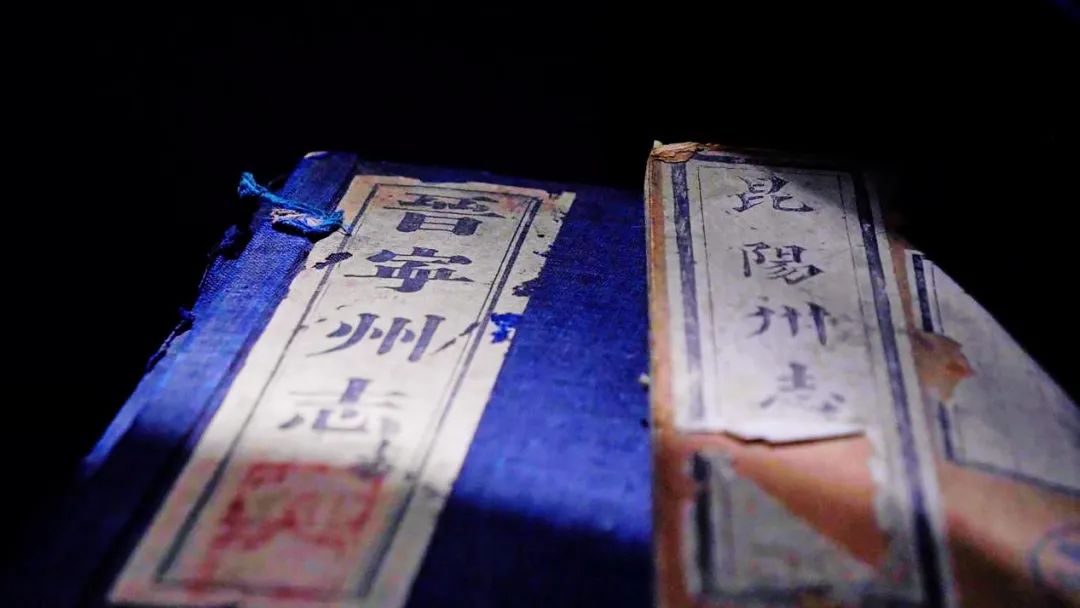 晋寧州志
昆陽州志